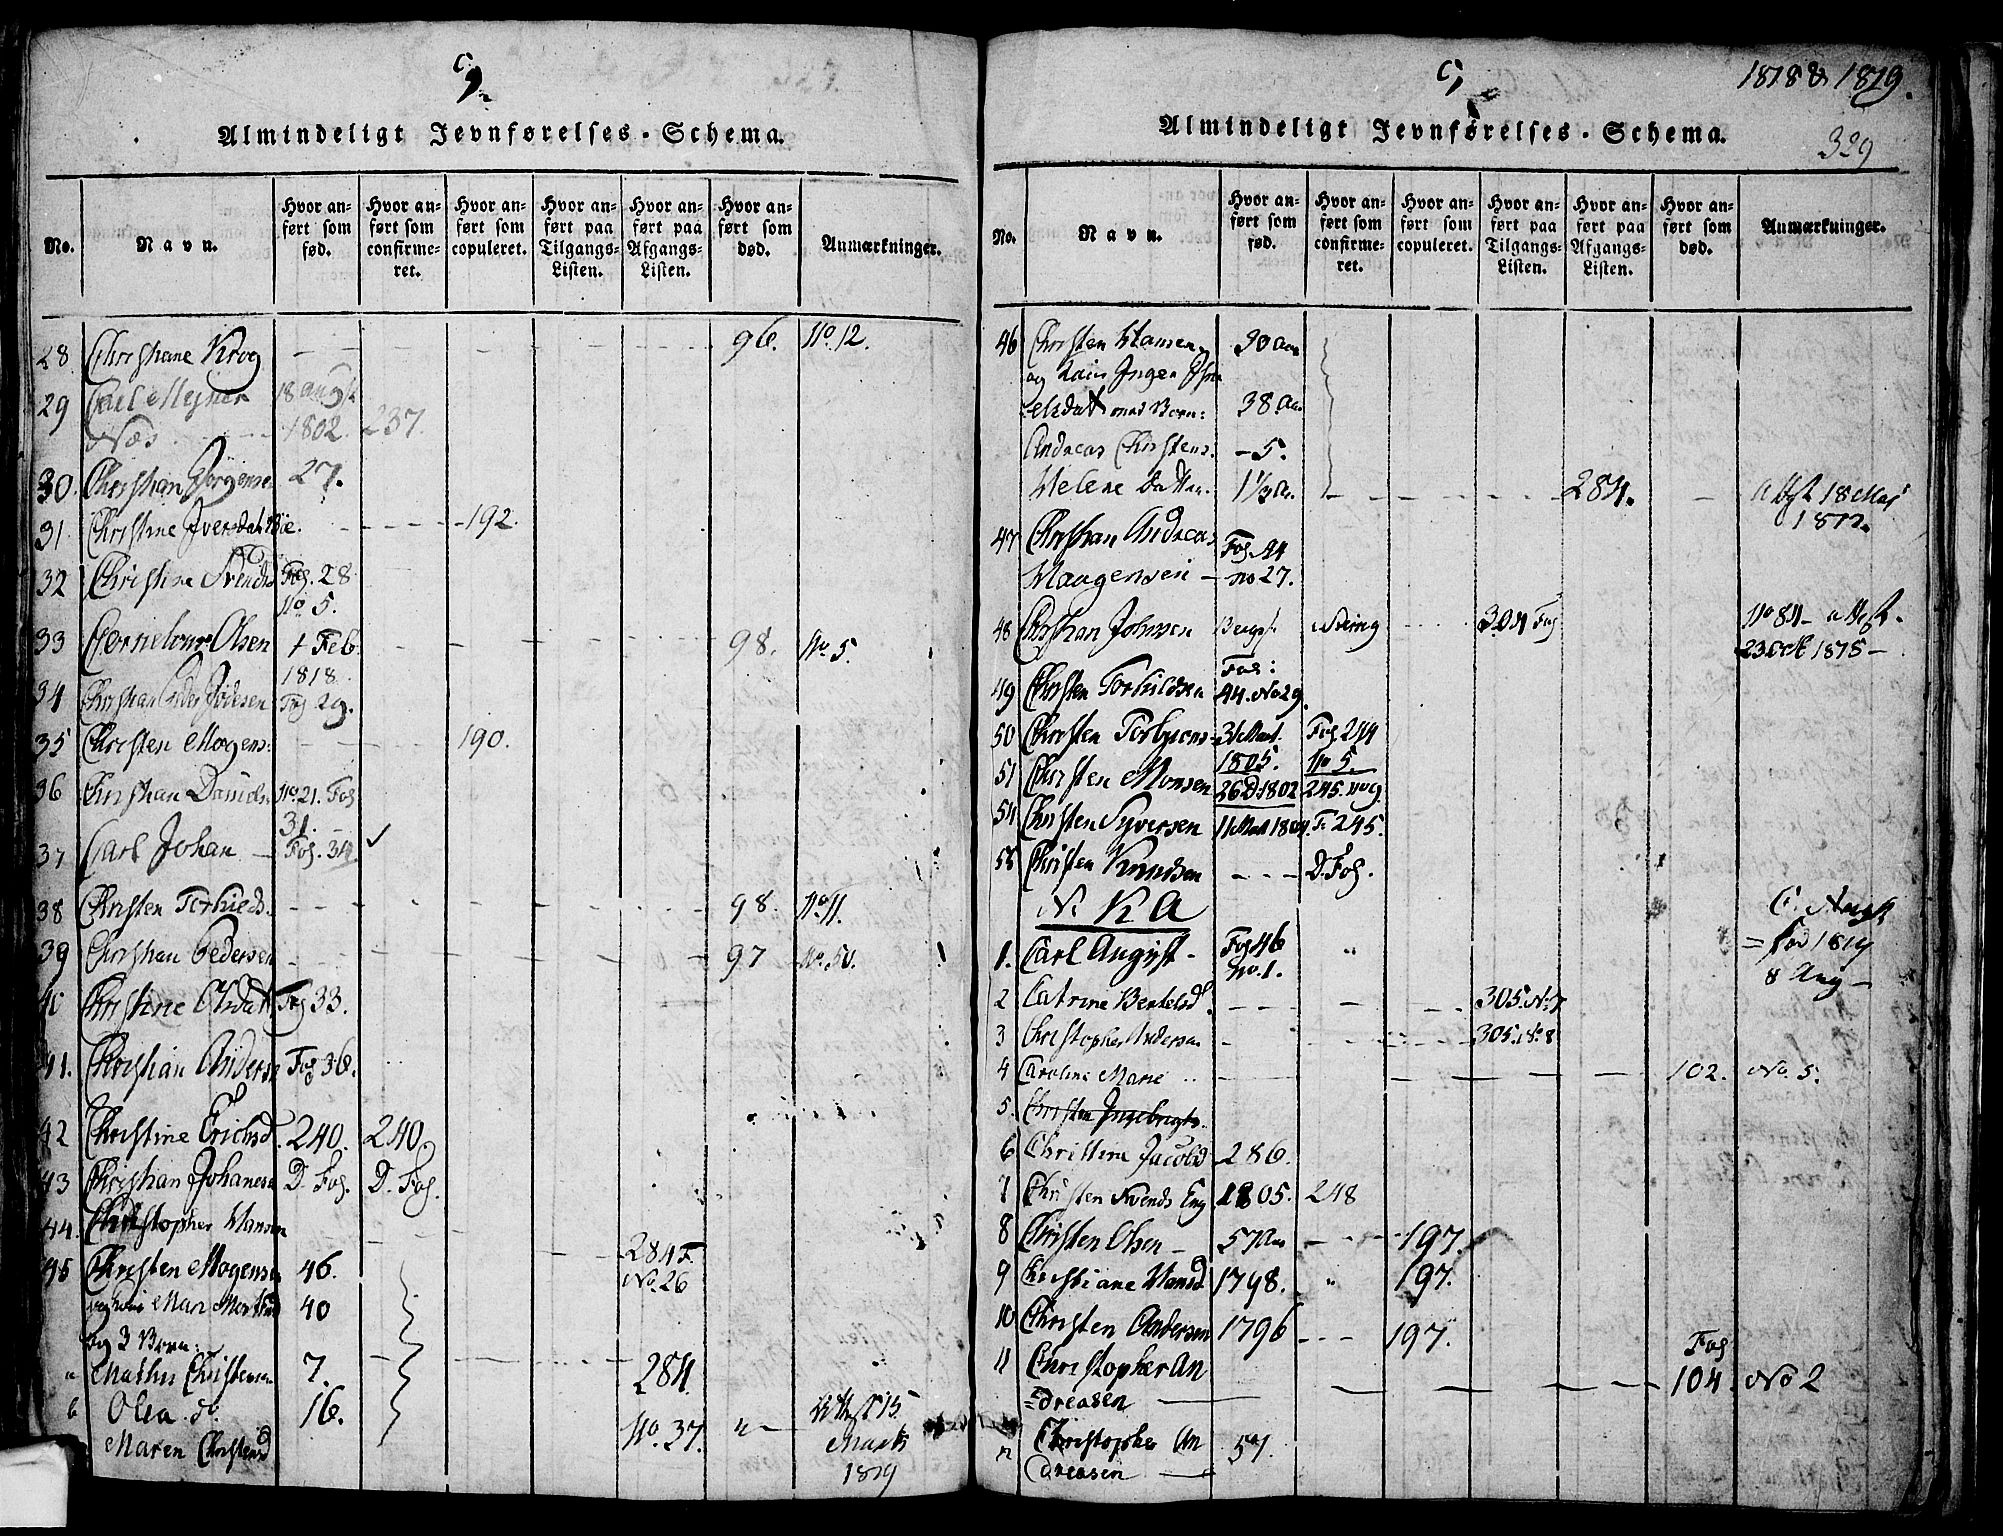 C,
Almindeligt Jevnførelses-Schema.
No.
Navn.
Hvor anført som fød.
Hvor anført som confirmeret.
Hvor anført som copuleret.
Hvor anført paa Tilgangs-Listen.
Hvor anført paa Afgangs-Listen.
Hvor anført som død.
Anmærkninger.
28 Christiane Krog 96. No. 12.
29 Carl Mejner 18 Augst
Næs 1802. 237.
30. Christian Jørgensen 27.
31 Christine Iversdat 192.
32 Christine Svends Fog. 28
No 5.
33 Cornelius Olsen 1 Feb 98. No. 5.
1818.
34 Christian Peder Fog 29.
35 Christen Mogens: 190.
36 Christian Daniels No. 21. Fog
31.
37 Carl Johan Fog. 34
38 Christen Torkilds. 98. No. 11.
39 Christian Pedersen 97 No. 50.
40 Christine Olsdatt Fog 33.
41. Christian Anders Fog 36.
42 Christine Erichsd. 240. 240.
43 Christian Johannesen D. Fog. D. Fog.
44. Christopher Hansen
284 F.
45 Christen Mogensen 46. No. 26
og Kone Mari 40
og 3 Børn.
a Mathis Christensen 7. 284.
b Olea do. 16. 15
Maren Christensd No. 37. Marts
1819
C, 1818 & 1819.
Almindeligt Jevnførelses-Schema.
329
No.
Navn.
Hvor anført som fød.
Hvor anført som confirmeret.
Hvor anført som copuleret.
Hvor anført paa Tilgangs-Listen.
Hvor anført paa Afgangs-Listen.
Hvor anført som død.
Anmærkninger.
46 Christen Hansen 30 Aar
og Kone Inger
med Børn: 38. Aar
Andreas Christens. 5.
Helene 1½ Aar. 284. 18 Maj
47 Christian Andreas Fog. 44
Haagensen no 27.
48 Christian Johnsen 304 Fog No 84
23 Oct 1815
Fog:
49 Christen Torkildsen 44. No 29.
50 Christen Torbjørns 3 Mart. Fog 244
1805. No 5.
51 Christen Monsen 26 D 1802 245. no 9.
54 Christen Syversen 11 Mart 1804. F. 245.
55 Christen Knudsen D. Fog.
N. K A
1. Carl August Fog 46 fød 1819
no. 1. 8 Aug
2 Catrine Bertelsd. 305. No 7
3 Christopher Andersen 305. No 8
4 Caroline Marie 102. No. 5.
5. Christen Ingebrigts.
6 Christine Jacobsd 286.
7 Christen Svends Eng 1805. 248
8 Christen Olsen 57 Aar 197.
9 Christiane Hansd 1798. 197.
10 Christen Andersen 1796 197.
11 Christopher An Fog
dreasen 104. No 2
12 Christopher An 51.
dreasen